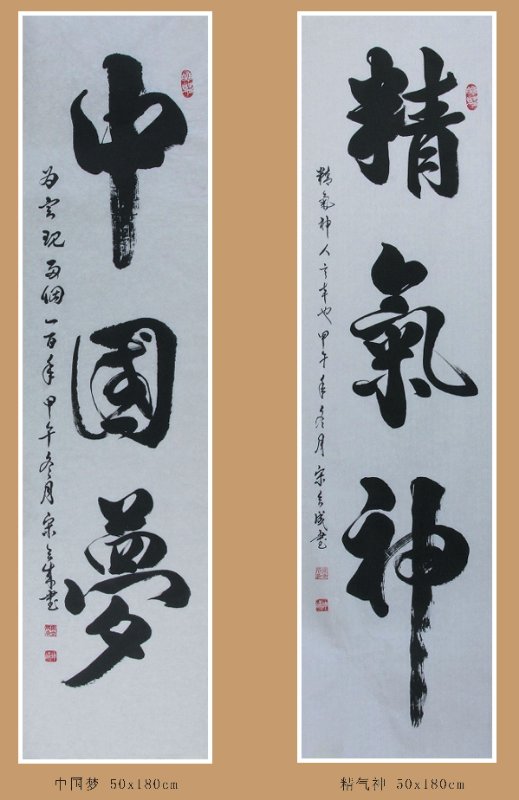 中國夢
为实现两個一百年 甲午冬月 宋
精氣神
精氣神人之本也 甲午年冬月 宋
中国梦 50x180cm
精气神 50x180cm